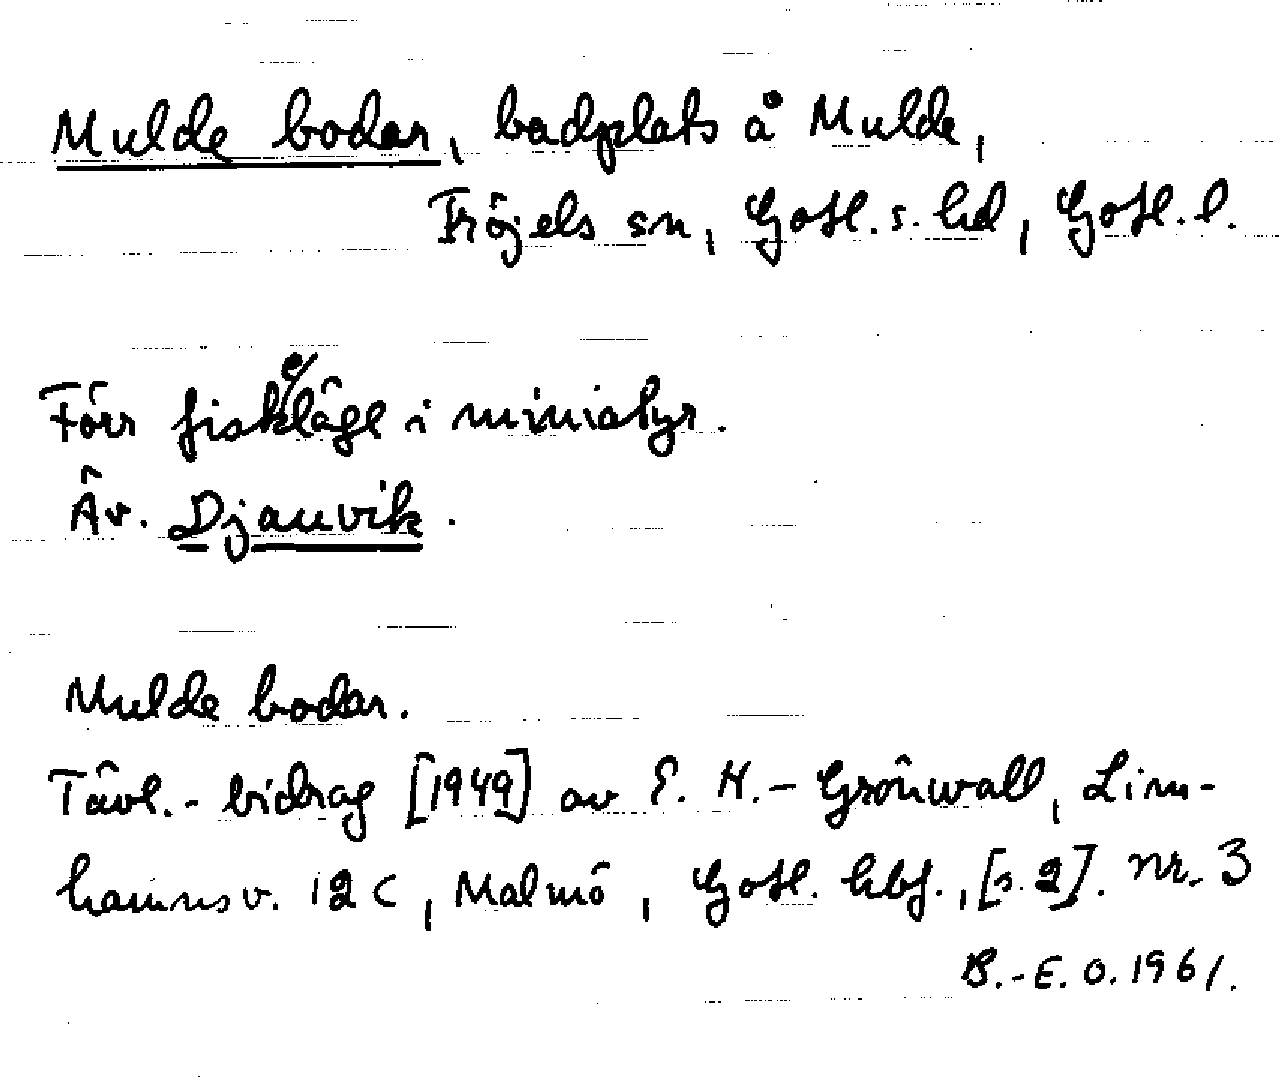 Mulde bodar, badplats å Mulde,
Fröjels sn, Gotl. s. hd, Gotl. l.
Förr fiskeläge i miniatyr.
Äv. Djauvik.
Mulde bodar.
Tävl.-bidrag [1949] av E. H.-Grönwall, Lim-
hamnsv. 12 C, Malmö, Gotl. hbf., [s. 2]. nr. 3
B.-E. O. 1961.